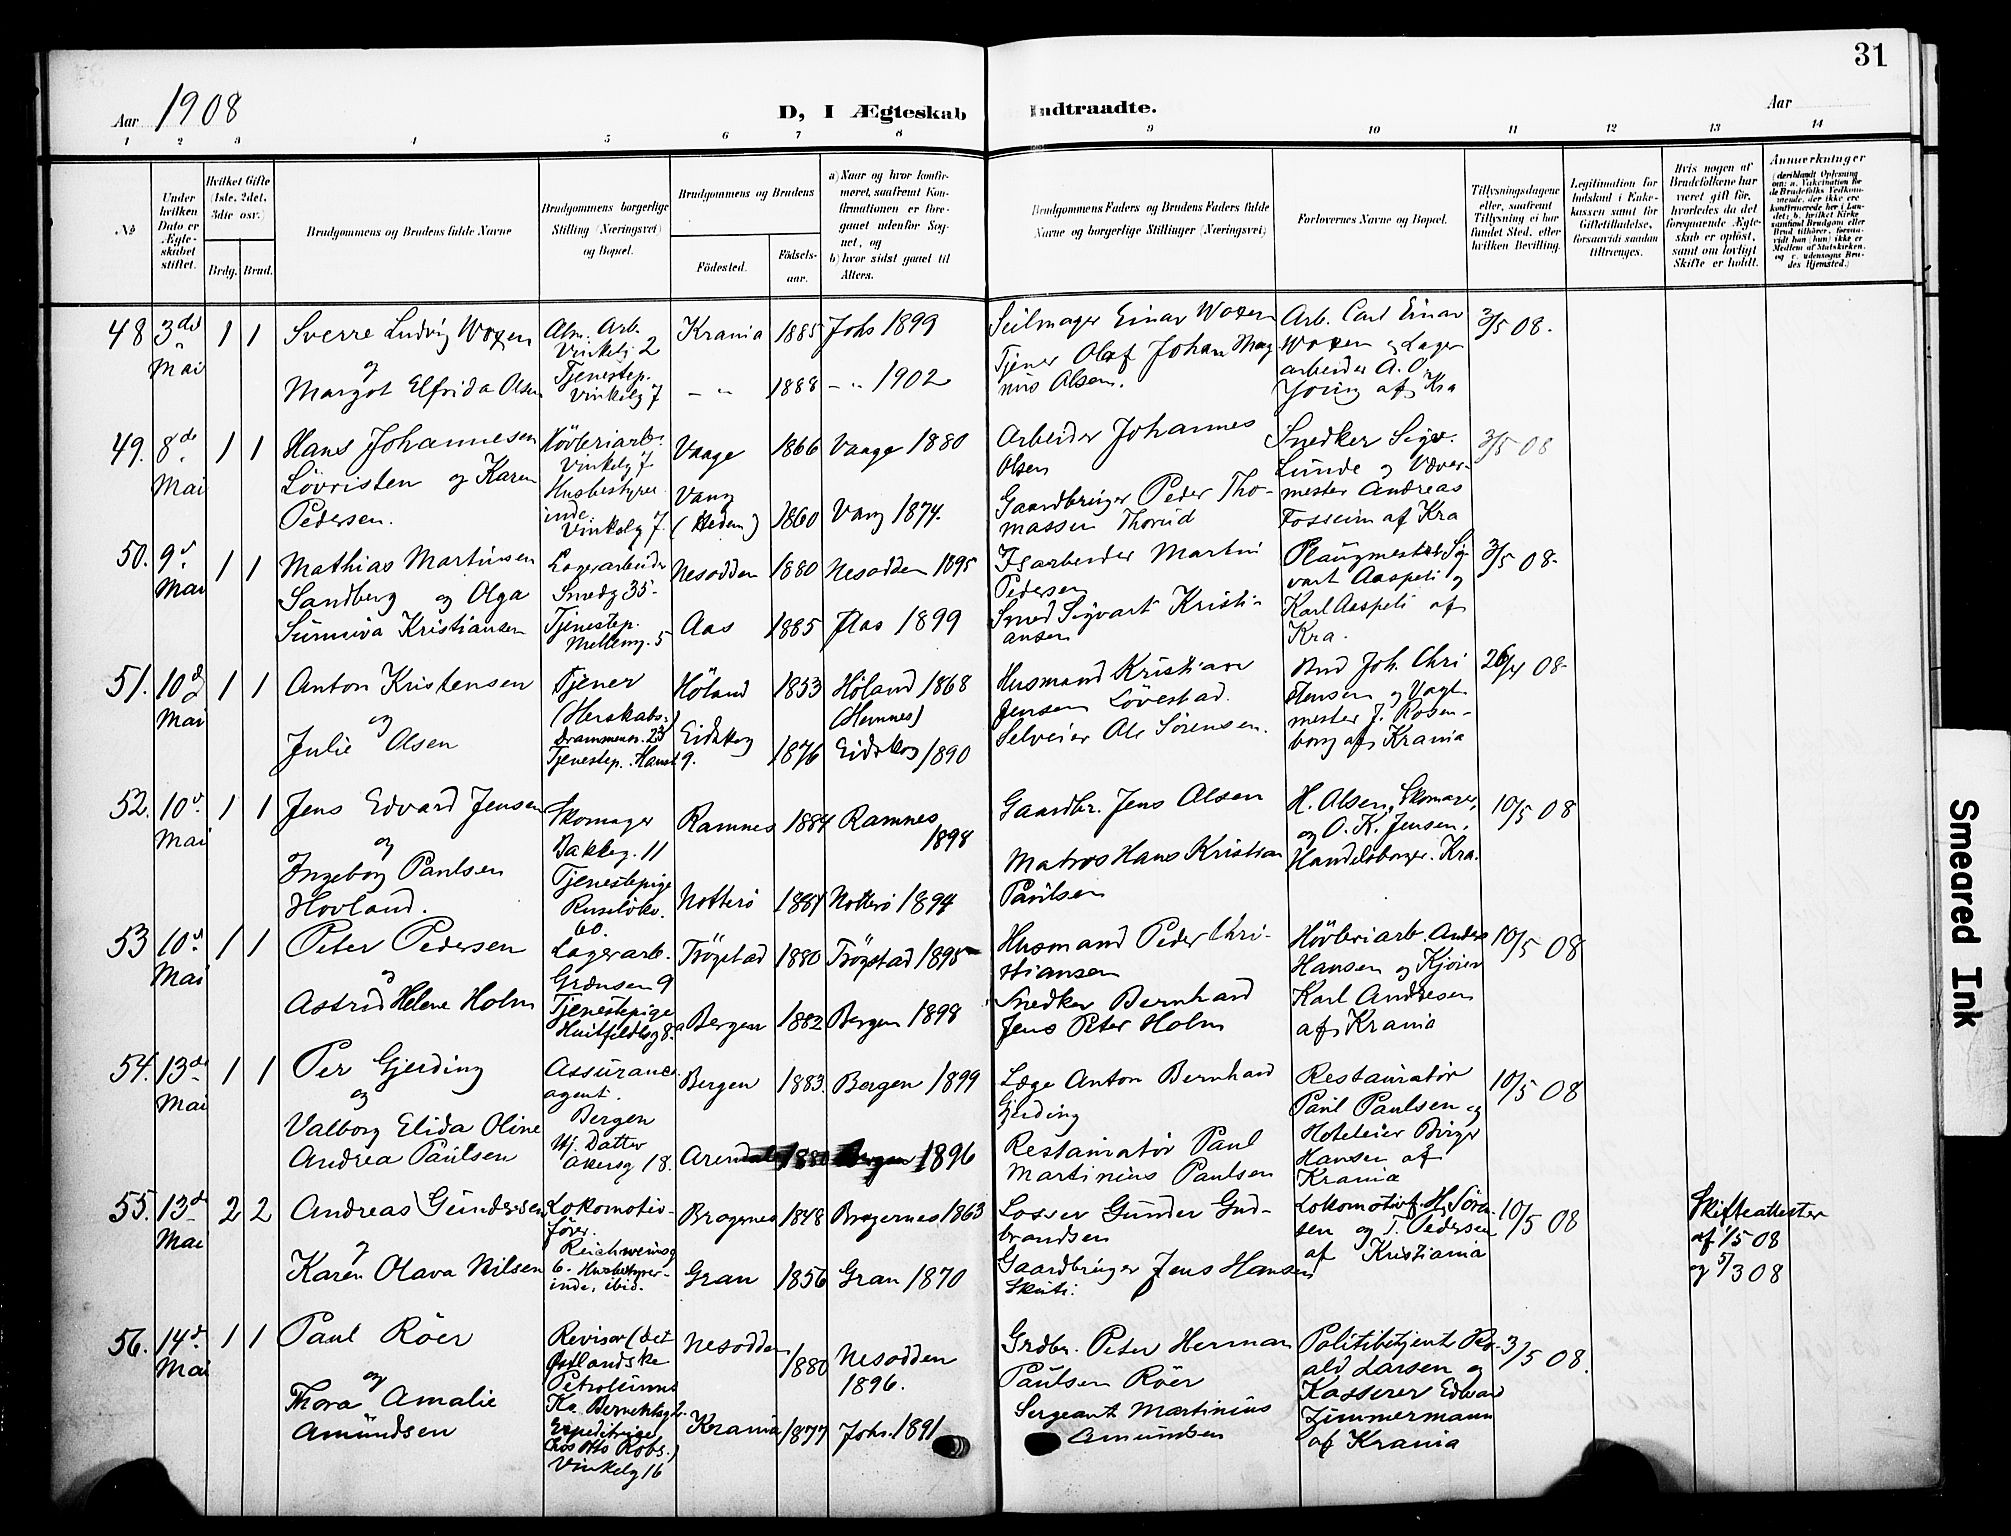 31
Aar 1908
D, I Ægteskab Indtraadte.
Aar
1 2 3 4 5 6 7 8 9 10 11 12 13 14
No
Under hvilken Dato er Ægteskabet stiftet.
Hvilket Gifte (1ste, 2det, 3die osv.)
Brdg. Brud.
Brudgommens og Brudens fulde Navne
Brudgommens borgerlige Stilling (Næringsvei) og Bopæl.
Brudgommens og Brudens
Fødested.
Fødselsaar.
a) Naar og hvor konfirmeret, saafremt Konfirmationen er foregaaet udenfor Sognet, og
b) hvor sidst gaaet til Alters.
Brudgommens Faders og Brudens Faders fulde Navne og borgerlige Stillinger (Næringsvei)
Forlovernes Navne og Bopæl.
Tillysningsdagene eller, saafremt Tillysning ei har fundet Sted, efter hvilken Bevilling.
Legitimation for Indskud i Enkekassen samt for Giftetilladelse, forsaavidt saadan tiltrænges.
Hvis nogen af Brudefolkene har været gift før, hvorledes da det foregaaende Ægteskab er opløst, samt om lovligt Skifte er holdt.
Anmærkninger (deriblandt Oplysning om: a. Vakcination for de Brudefolks Vedkommende, der ikke ere konfirmerede her i Landet; b. hvilket Kirkesamfund Brudgom eller Brud tilhører, forsaavidt han (hun) ikke er Medlem af Statskirken, og c. udensogns Brudes Hjemsted.)
48 3die Mai 1 1
Sverre Ludvig Woxen
og
Margot Elfrida Olsen
Alm. Arb.
Vinkelg 2
Tjenestep.
Vinkelg 7
Krania 1885 Johs 1899
- " - 1888 - " - 1902
Seilmager Einar Woxen
Tjener Olaf Johan Mag
nus Olsen.
Arb. Carl Einar
Woxen og Lager
arbeider A. O.
Young af Kra
3/5 08.
49. 8de Mai 1 1
Hans Johannesen
Lövristen og Karen
Pedersen.
Hövleriarb.
Vinkelg 7.
Husbestyrer
inde.
Vinkelg 7.
Vaage 1866 Vaage 1880
Vang
(Hedem) 1860 Vang 1874.
Arbeider Johannes
Olsen
Gaardbruger Peder Tho-
massen Thorud
Snedker Sigv.
Lunde og Væver-
mester Andreas
Fosseim af Kra
3/5 08
50. 9de Mai 1 1
Mathias Martinsen
Sandberg og Olga
Sunniva Kristiansen
Lagerarbeider
Smedg 35-
Tjenestep.
Mellemg. 5
Nesodden 1880 Nesodden 1895
Aas 1885 Aas 1899
Isarbeider Martin
Pedersen
Smed Sigvart Kristi-
ansen
Sig-
vart Aaspeli og
Karl Aaspeli af
Kra.
3/5 08-
51. 10de Mai 1 1
Anton Kristensen
og
Julie Olsen
Tjener
(Herskabs-)
Drammensv. 23
Tjenestep.
9.
Höland 1853 Höland 1868
(Hemnes)
Eidskog 1876 Eidskog 1890
Husmand Kristian
Jensen Lövestad.
Selveier Ole Sörensen.
Bud Joh. Chri
stensen og Vagt-
mester J. Rosen-
borg af Krania
26/4 08-
52. 10de Mai 1 1
Jens Edvard Jensen
og
Ingeborg Paulsen
Hovland.
Skomager
Bakkeg. 11
Tjenestepige
Ruselökv.
60.
Ramnes 1884 Ramnes
1898
Nötterö 1881 Nötterö 1894
Gaardbr. Jens Olsen
Matros Hans Kristian
Paulsen
H. Olsen, Skomager,
og O. K. Jensen,
Handelsborger. Kra.
10/5 08
53 10de Mai 1 1
Peter Pedersen
og
Astrid Helene Holm
Lagerarb.
Grænsen 9
Tjenestepige
Huitfeldtsg 8.
Trögstad 1880 Trögstad 1895
Bergen 1882 Bergen 1898
Husmand Peder Chri-
stiansen
Snedker Bernhard
Jens Peter Holm
Hövleriarb. Anders
Hansen og Kjörer
Karl Andresen
af Krania
10/5 08
54. 13de Mai 1 1
Per Gjerding
og
Valborg Elida Oline
Andrea Paulsen
Assurance
agent.
Bergen
Hj. Datter
Akersg 18.
Bergen 1883. Bergen 1899
Arendal 1880 Bergen 1896
Læge Anton Bernhard
Gjerding
Restauratör Paul
Martinius Paulsen
Restauratör
Paul Paulsen og
Hoteleier Birger
Hansen af
Krania
10/5 08
55. 13de Mai 2 2
Andreas Gundersen
og
Karen Olava Nilsen
Lokomotiv-
förer.
Reichweinsg
6. Husbestyrer-
inde, ibid.
Bragernes 1848 Bragernes 1863
Gran 1856 Gran 1870
Losser Gunder Gud-
brandsen
Gaardbruger Jens Hansen
Skute.
Lokomotivf. H. Sören-
sen og T. Pedersen
af Kristiania
10/5 08
Skifteattester
af 1/5 08
og 5/3 08
56. 14de Mai 1 1
Paul Röer
og
Thora Amalie
Amundsen
Revisor (det
östlandske
Petroleums
Ko.
Expeditrice
hos Otto Robs.)
Vinkelg 16
Nesodden 1880 Nesodden
1896.
Krania 1877 Johs. 1891
Grdbr. Peter Herman
Paulsen Röer
Sergeant Martinius
Amundsen
Politibetjent Ro-
ald Larsen og
Kasserer Edvard
Zimmermann
af Krania
3/5 08.
Smeared Ink